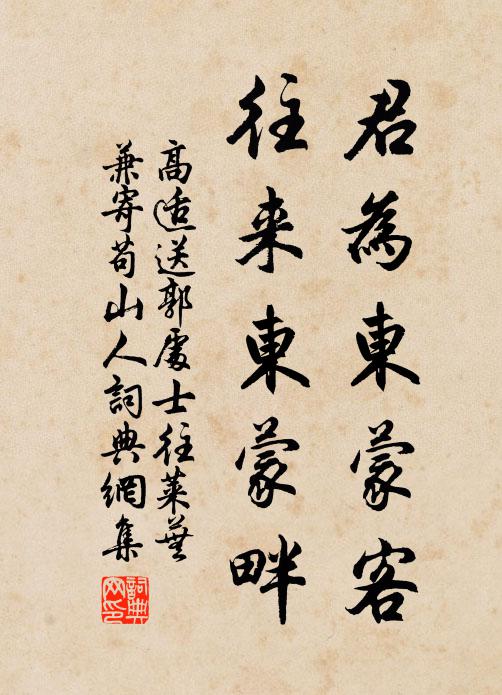 君為東蒙客
往来東蒙畔
高适送郭處士往萊蕪
兼寄苟山人詞典網集
詞典網印